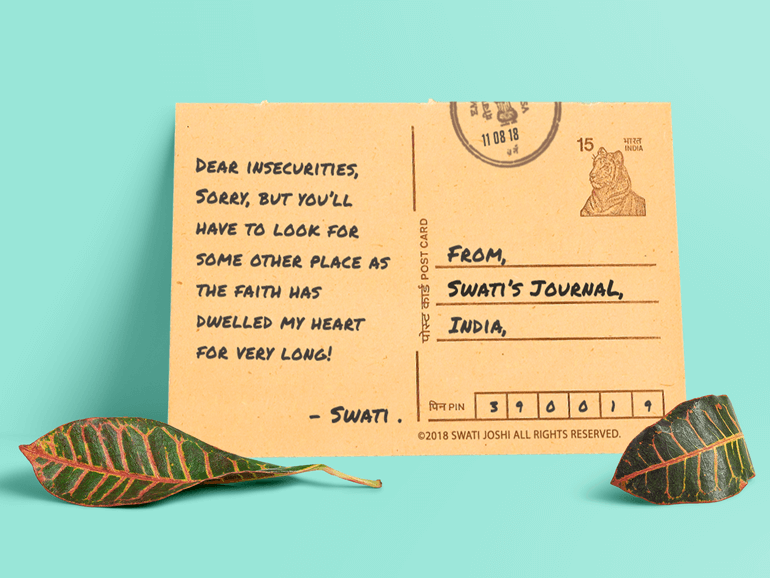 DEAR INSECURITIES,
SORRY, BUT YOU'LL
HAVE TO LOOK FOR
SOME OTHER PLACE AS
THE FAITH HAS
DWELLED MY HEART
FOR VERY LONG!
- SWATI .
पोस्ट कार्ड POST CARD
11 08 18
15 भारत
INDIA
FROM,
SWATI'S JOURNAL,
INDIA,
पिन PIN 3 9 0 0 1 9
©2018 SWATI JOSHI ALL RIGHTS RESERVED.